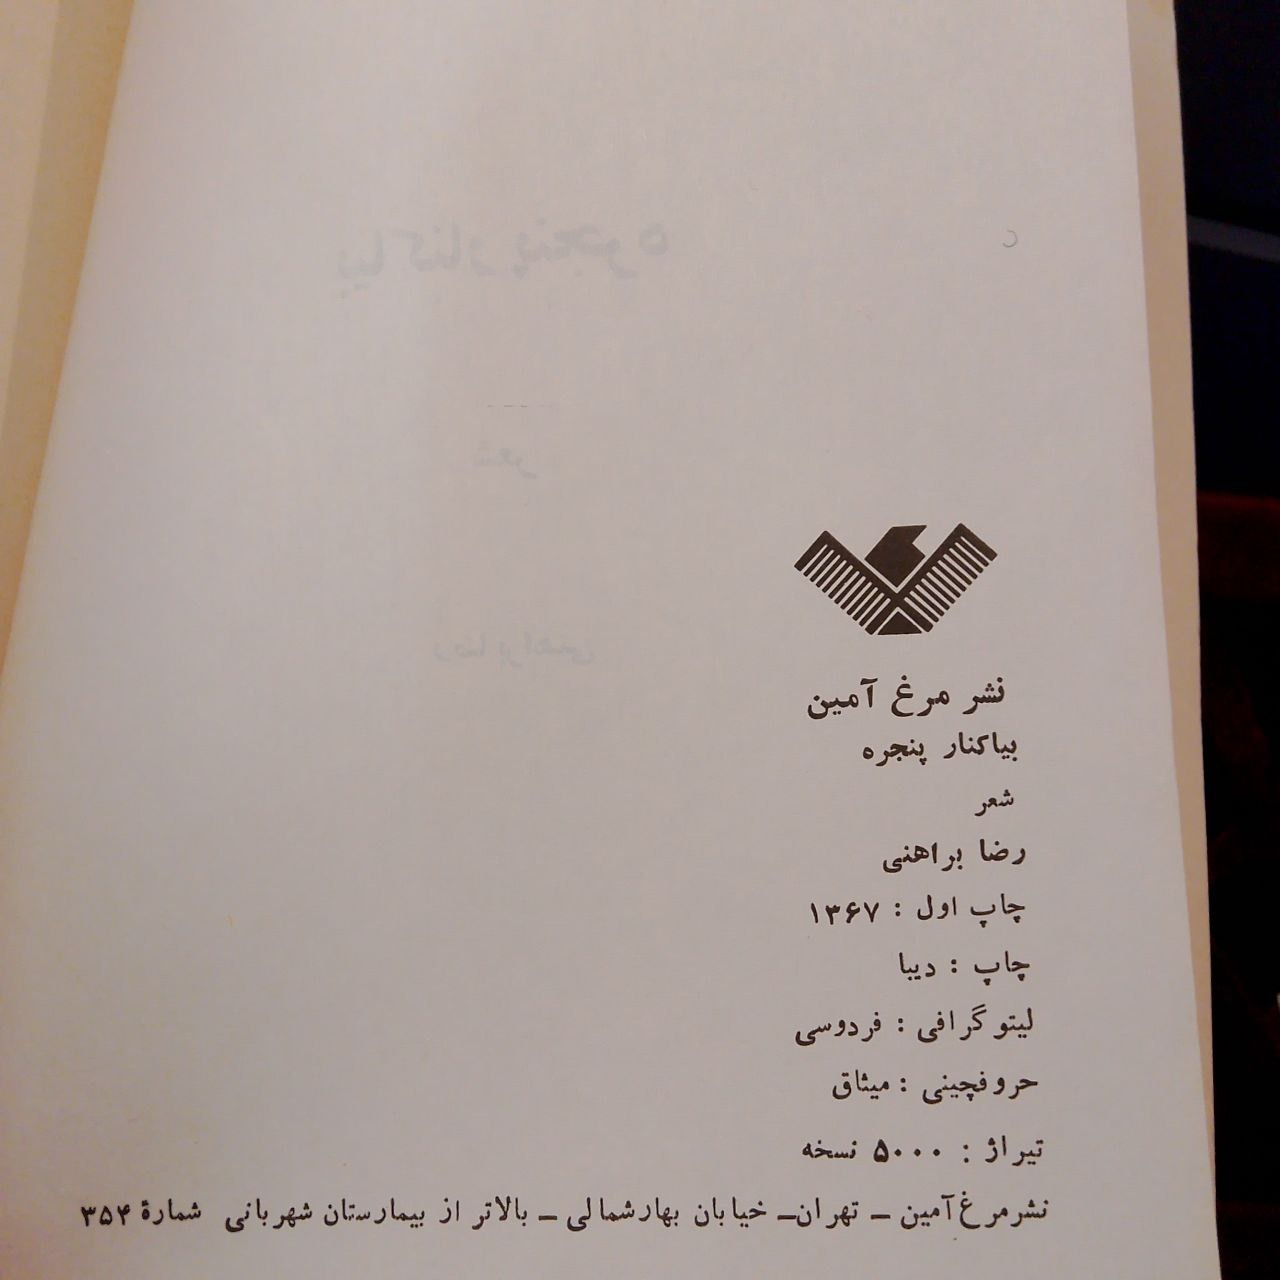 نشر مرغ آمین
بیاکنار پنجره
شعر
رضا براهنی
چاپ اول : ۱۳۶۷
چاپ : دیبا
لیتوگرافی : فردوسی
حروفچینی : میثاق
تیراژ : ۵۰۰۰ نسخه
نشرمرغ آمین – تهران– خیابان بهارشمالی – بالاتر از بیمارستان شهربانی شمارهٔ ۳۵۴